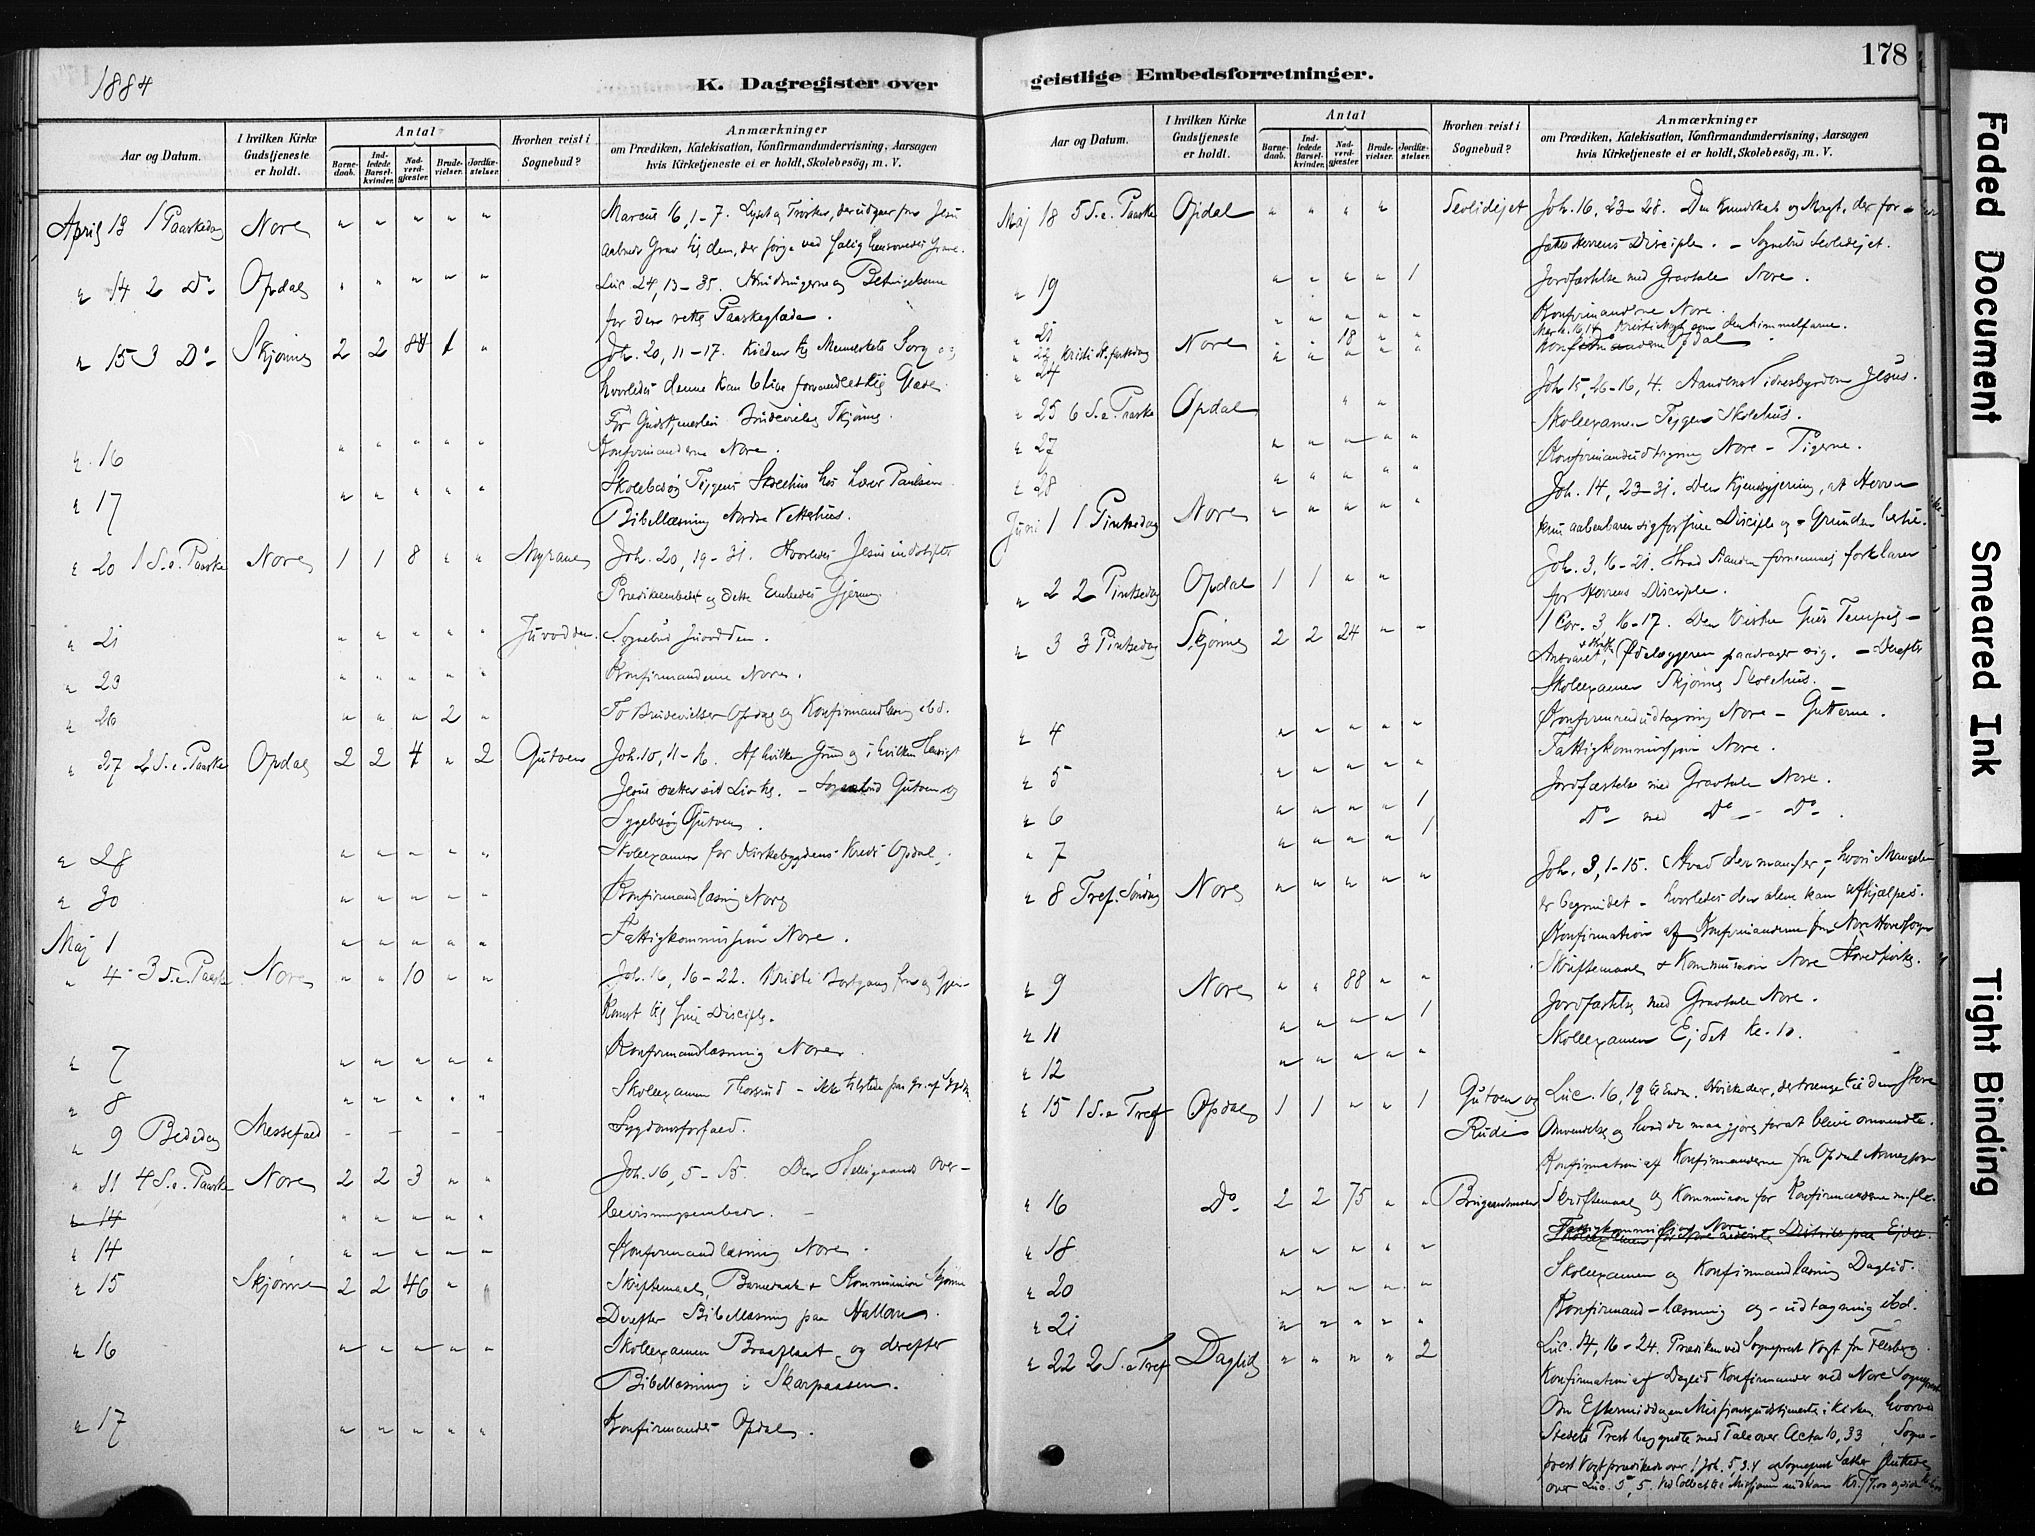 1884
K. Dagregister over
Aar og Datum.
I hvilken Kirke Gudstjeneste er holdt.
Antal
Barnedaab.
Indledede Barselkvinder.
Nadverdgjæster.
Brudevielser.
Jordfæstelser.
Hvorhen reist i Sognebud?
Anmærkninger
om Prædiken, Katekisation, Konfirmandundervisning, Aarsagen
hvis Kirketjeneste ei er holdt, Skolebesøg, m. V.
April 13 1 Paaskedag Nore " " " " " Marcus 16, 1-7.
" 14 2 Do Opdal " " " " " Luc. 24, 13-35.
for den rette Paaskeglæde.
" 15 3 Do Skjønne 2 2 84 1 " Joh. 20, 11-17. Kilden til Menneskets Sorg og
hvorledes denne kan blive forvandlet til Glæde.
Før Gudstjenesten Brudevielse Skjønne.
" 16 " " " " " Konfirmanderne Nore.
" 17 " " " " " Skolebesøg Skolehus hos Lærer Paulsen
Bibellæsning Nordre Vettehus.
" 20 1 S. e. Paaske Nore 1 1 8 " " Myrane Joh. 20, 19-31. Hvorledes Jesus indstifter
Prædikeembedet og dette Embedes Gjerning.
" 21 " " " " " Juvodden. Sognebud Juvodden.
" 23 " " " " " Konfirmanderne Nore.
" 26 " " " 2 " To Brudevielser Opdal og Konfirmandlæsning ibd.
" 27 2 S. e. Paaske Opdal 2 2 4 " 2 Gutven Joh. 10, 11-16. Af hvilken Grund og i hvilken Hensigt
Jesus sætter sit Liv til. - Sognebud Gutven og
Sygebesøg Gutven.
" 28 " " " " " Skoleexamen for Kirkebygdens Kreds Opdal.
" 30 " " " " " Konfirmandlæsning Nore
Maj 1 " " " " " Fattigkommission Nore.
" 4 3 S. e. Paaske Nore " " 10 " " Joh. 16, 16-22. Kristi Bortgang fra og Gjen-
komst til sine Disciple.
" 7 " " " " " Konfirmandlæsning Nore.
" 8 " " " " " Skoleexamen Thorsrud - ikke tilstede
" 9 Bededag Messefald - - - - Sygdomsforfald.
" 11 4 S. e. Paaske Nore 2 2 3 " " Joh. 16, 5-15. Den Helligaands Over-
" 14 " " " " " bevisningsembede.
" 14 " " " " " Konfirmandlæsning Nore.
" 15 Skjønne 2 2 46 " " Skriftemaal, Barnedaab & Kommunion Skjønne
Derefter Bibellæsning paa Hallom.
" 16 " " " " " Skoleexamen Braaflaat og derefter
Bibellæsning i Skarpaasen.
" 17 " " " " " Konfirmander Opdal.
geistlige Embedsforretninger.
178
Aar og Datum.
I hvilken Kirke Gudstjeneste er holdt.
Antal
Barnedaab.
Indledede Barselkvinder.
Nadverdgjæster.
Brudevielser.
Jordfæstelser.
Hvorhen reist i Sognebud?
Anmærkninger
om Prædiken, Katekisation, Konfirmandundervisning, Aarsagen
hvis Kirketjeneste ei er holdt, Skolebesøg, m. V.
Maj 18 5 S. e. Paaske Opdal " " " " Joh. 16, 23-28. Den Kundskab og Magt, der for-
fattes Herrens Disciple. - Sognebud
" 19 " " " " 1 Jordfæstelse med Gravtale Nore.
" 21 " " " " " Konfirmanderne Nore.
" 22 Kristi Nore " " 18 " "
" 24 " " " " " Konfirmanderne Opdal
" 25 6 S. e. Paaske Opdal " " Joh. 15, 26-16, 4. Aandens Vidnesbyrd om Jesus.
" 27 " " " " " Skoleexamen Skolehus.
" 28 " " " " " Konfirmandudtagning Nore - Pigerne.
Juni 1 1 Pintsedag Nore " " " " " Joh. 14, 23-31. Den Kjendsgjerning, at Herren
kun aabenbarer sig for sine Disciple og - Grunden hertil.
" 2 2 Pintsedag Opdal 1 1 " " Joh. 3, 16-21. Hvad Aanden fornemmelig forklarer
for Herrens Disciple.
" 3 3 Pintsedag Skjønne 2 2 24 " " 1 Cor. 3, 16-17. Den Kristne Guds Tempel -
Ansvaret Ødelæggeren paadrager sig. - Derefter
Skoleexamen Skjønne Skolehus.
" 4 " " " " " Konfirmandudtagning Nore - Gutterne.
" 5 " " " " " Fattigkommission Nore.
" 6 " " " " 1 Jordfæstelse med Gravtale Nore.
" 7 " " " " 1 Do med Do - Do.
" 8 Tref. Søndag Nore " " " " " Joh. 3, 1-15. Hvad der mangler, - hvori Mangelen
er begrundet - hvorledes den alene kan afhjælpes.
Konfirmation af Konfirmanderne fra Nore Hovedsogn
" 9 Nore " " 88 " " Skriftemaal & Kommunion Nore Hovedkirke.
" 11 " " " " 1 Jordfæstelse med Gravtale Nore.
" 12 " " " " " Skoleexamen Ejdet kl. 10.
" 15 1 S. e. Tref Opdal 1 1 " " 1 Gutven og Rudi Luc. 16, 19 til Enden. der, der trænge til den store
Omvendelse og hvad de maa gjøre for at blive omvendte.
Konfirmation af Konfirmanderne fra Opdal Annexsogn
" 16 Do 2 2 75 " " Skriftemaal og Kommunion for Konfirmanderne m. fl.
" 18 " " " " " Fattigkommission Nore
" 20 " " " " " Skoleexamen og Konfirmandlæsning Daglid.
" 21 " " " " " Konfirmand-læsning og -udtagning ibd.
" 22 2 S. e. Tref Daglid " " " " 2 Luc. 14, 16-24. Prædiken ved Sogneprest Vogt fra Flesberg.
Konfirmation af Daglid Konfirmander ved Nore Sogneprest
Om Eftermiddagen Missionsgudstjeneste i Kirken, hvorved
Stedets Prest begyndte med Tale over Acta 10, 33, Sogne-
prest Vogt prædikede over 1 Joh. 5, 3.4 og Sogneprest sluttede
over Luc. 5, 5.
Faded Document
Smeared Ink
Tight Binding